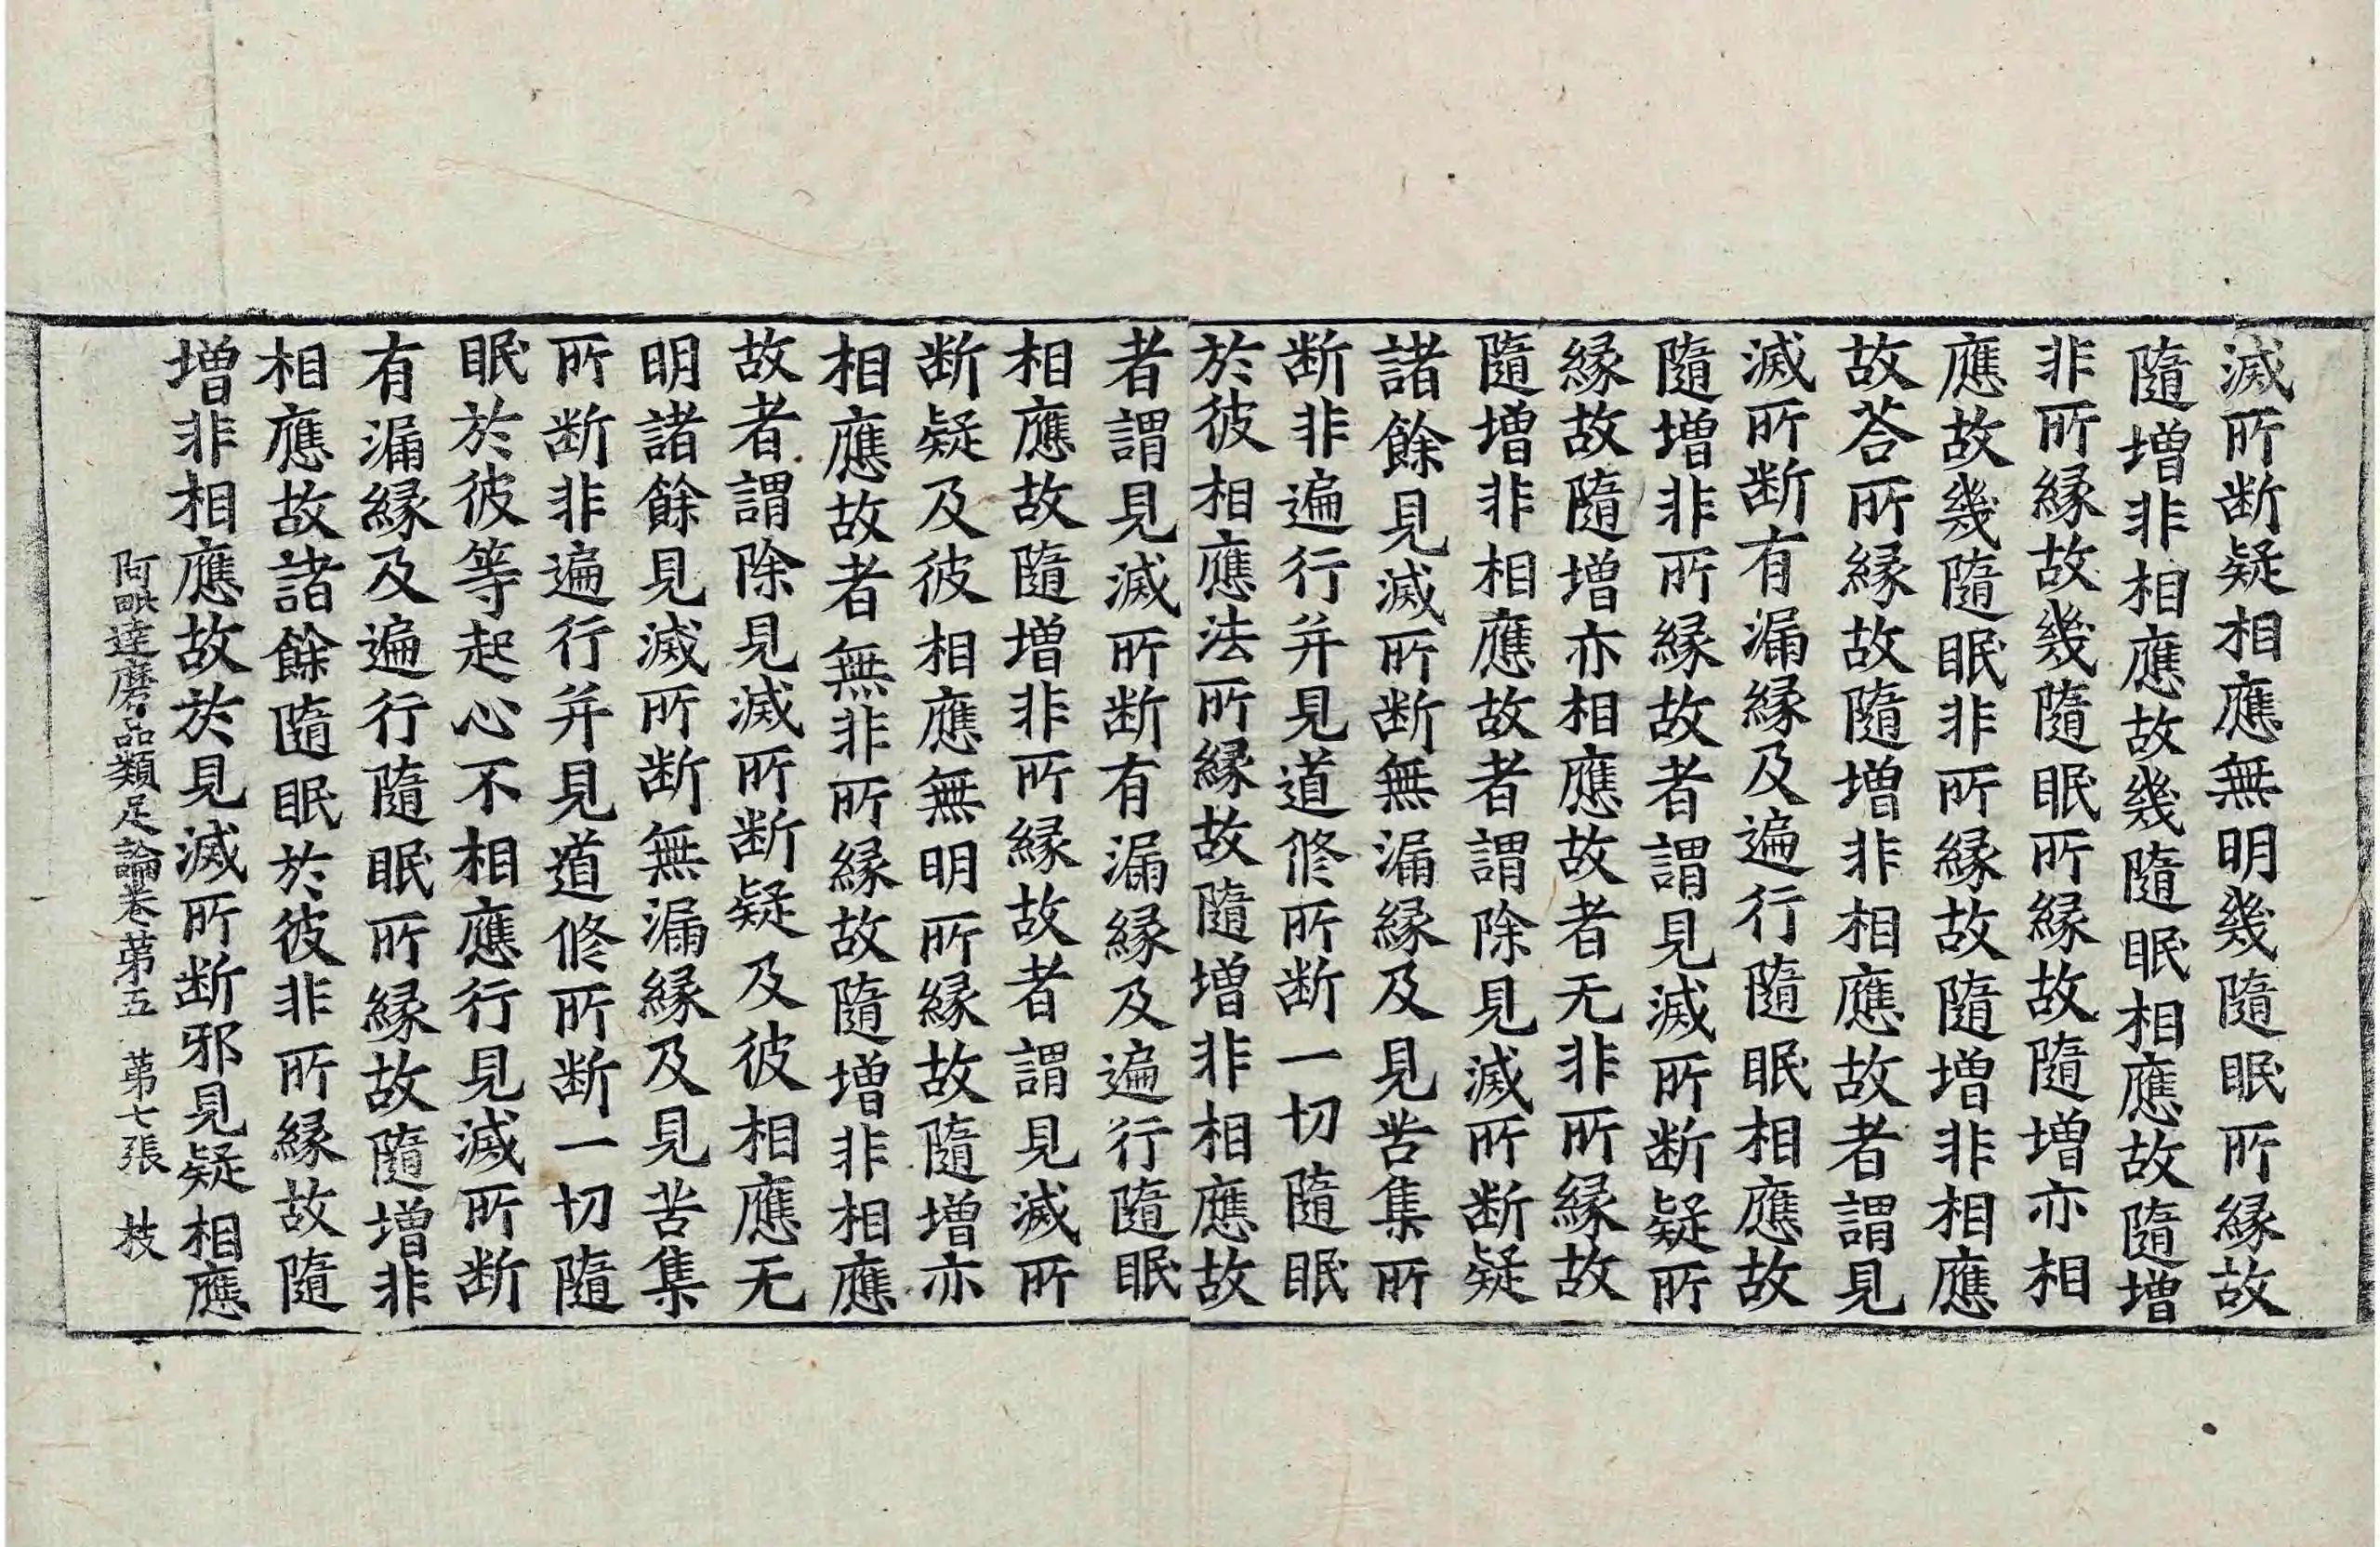 滅所断疑相應無明幾隨眠所縁故
隨增非相應故幾隨眠相應故隨增
非所縁故幾隨眠所縁故隨增亦相
應故幾隨眠非所縁故隨增非相應
故荅所縁故隨增非相應故者謂見
滅所断有漏縁及遍行隨眠相應故
隨增非所縁故者謂見滅所断疑所
縁故隨增亦相應故者无非所縁故
隨增非相應故者謂除見滅所断疑
諸餘見滅所断無漏縁及見苦集所
断非遍行并見道修所断一切隨眠
於彼相應法所縁故隨增非相應故
者謂見滅所断有漏縁及遍行隨眠
相應故隨增非所縁故者謂見滅所
断疑及彼相應無明所縁故隨增亦
相應故者無非所縁故隨增非相應
故者謂除見滅所断疑及彼相應无
明諸餘見滅所断無漏縁及見苦集
所断非遍行并見道修所断一切隨
眠於彼等起心不相應行見滅所断
有漏縁及遍行隨眠所縁故隨增非
相應故諸餘隨眠於彼非所縁故隨
增非相應故於見滅所断邪見疑相應
阿毗達磨品類足論卷苐五 苐七張 技